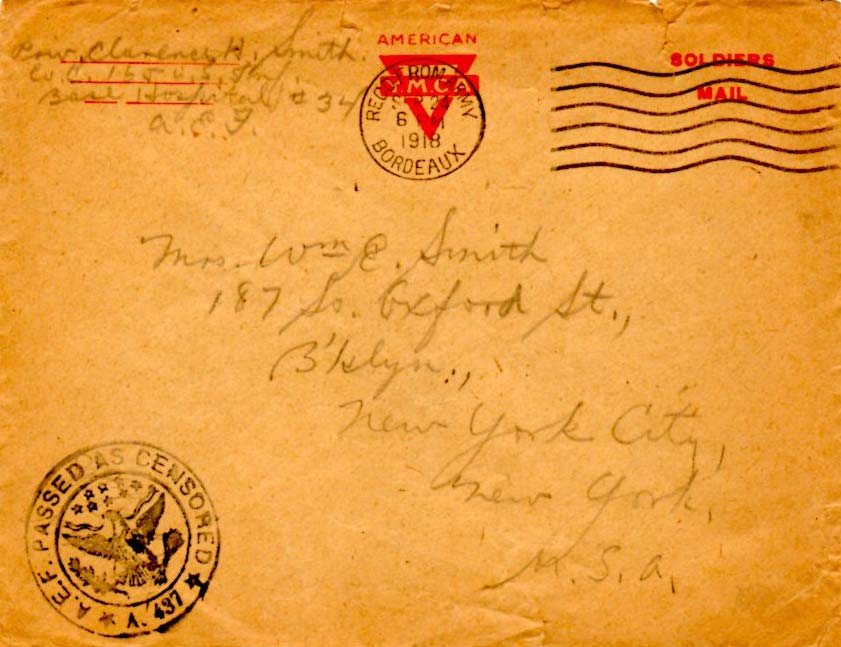 Clarence H. Smith
Base Hospital # 34
A.E.F.
AMERICAN
Y.M.C.A.
SOLDIERS
MAIL
REC'D FROM ARMY
6
1918
BORDEAUX
Mrs. Wm E. Smith
187 So. Oxford St.,
B'klyn.,
New York City,
New York,
U.S.A,
A.E.F. PASSED AS CENSORED
A. 437